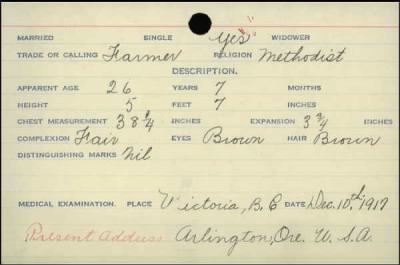 MARRIED SINGLE Yes WIDOWER
TRADE OR CALLING Farmer RELIGION Methodist
DESCRIPTION.
APPARENT AGE 26 YEARS 7 MONTHS
HEIGHT 5 FEET 7 INCHES
CHEST MEASUREMENT 38 1/4 INCHES EXPANSION 3 3/4 INCHES
COMPLEXION Fair EYES Brown HAIR Brown
DISTINGUISHING MARKS Nil
MEDICAL EXAMINATION. PLACE Victoria, B.C DATE Dec. 10th 1917
Present Address Arlington, Ore. U.S.A.